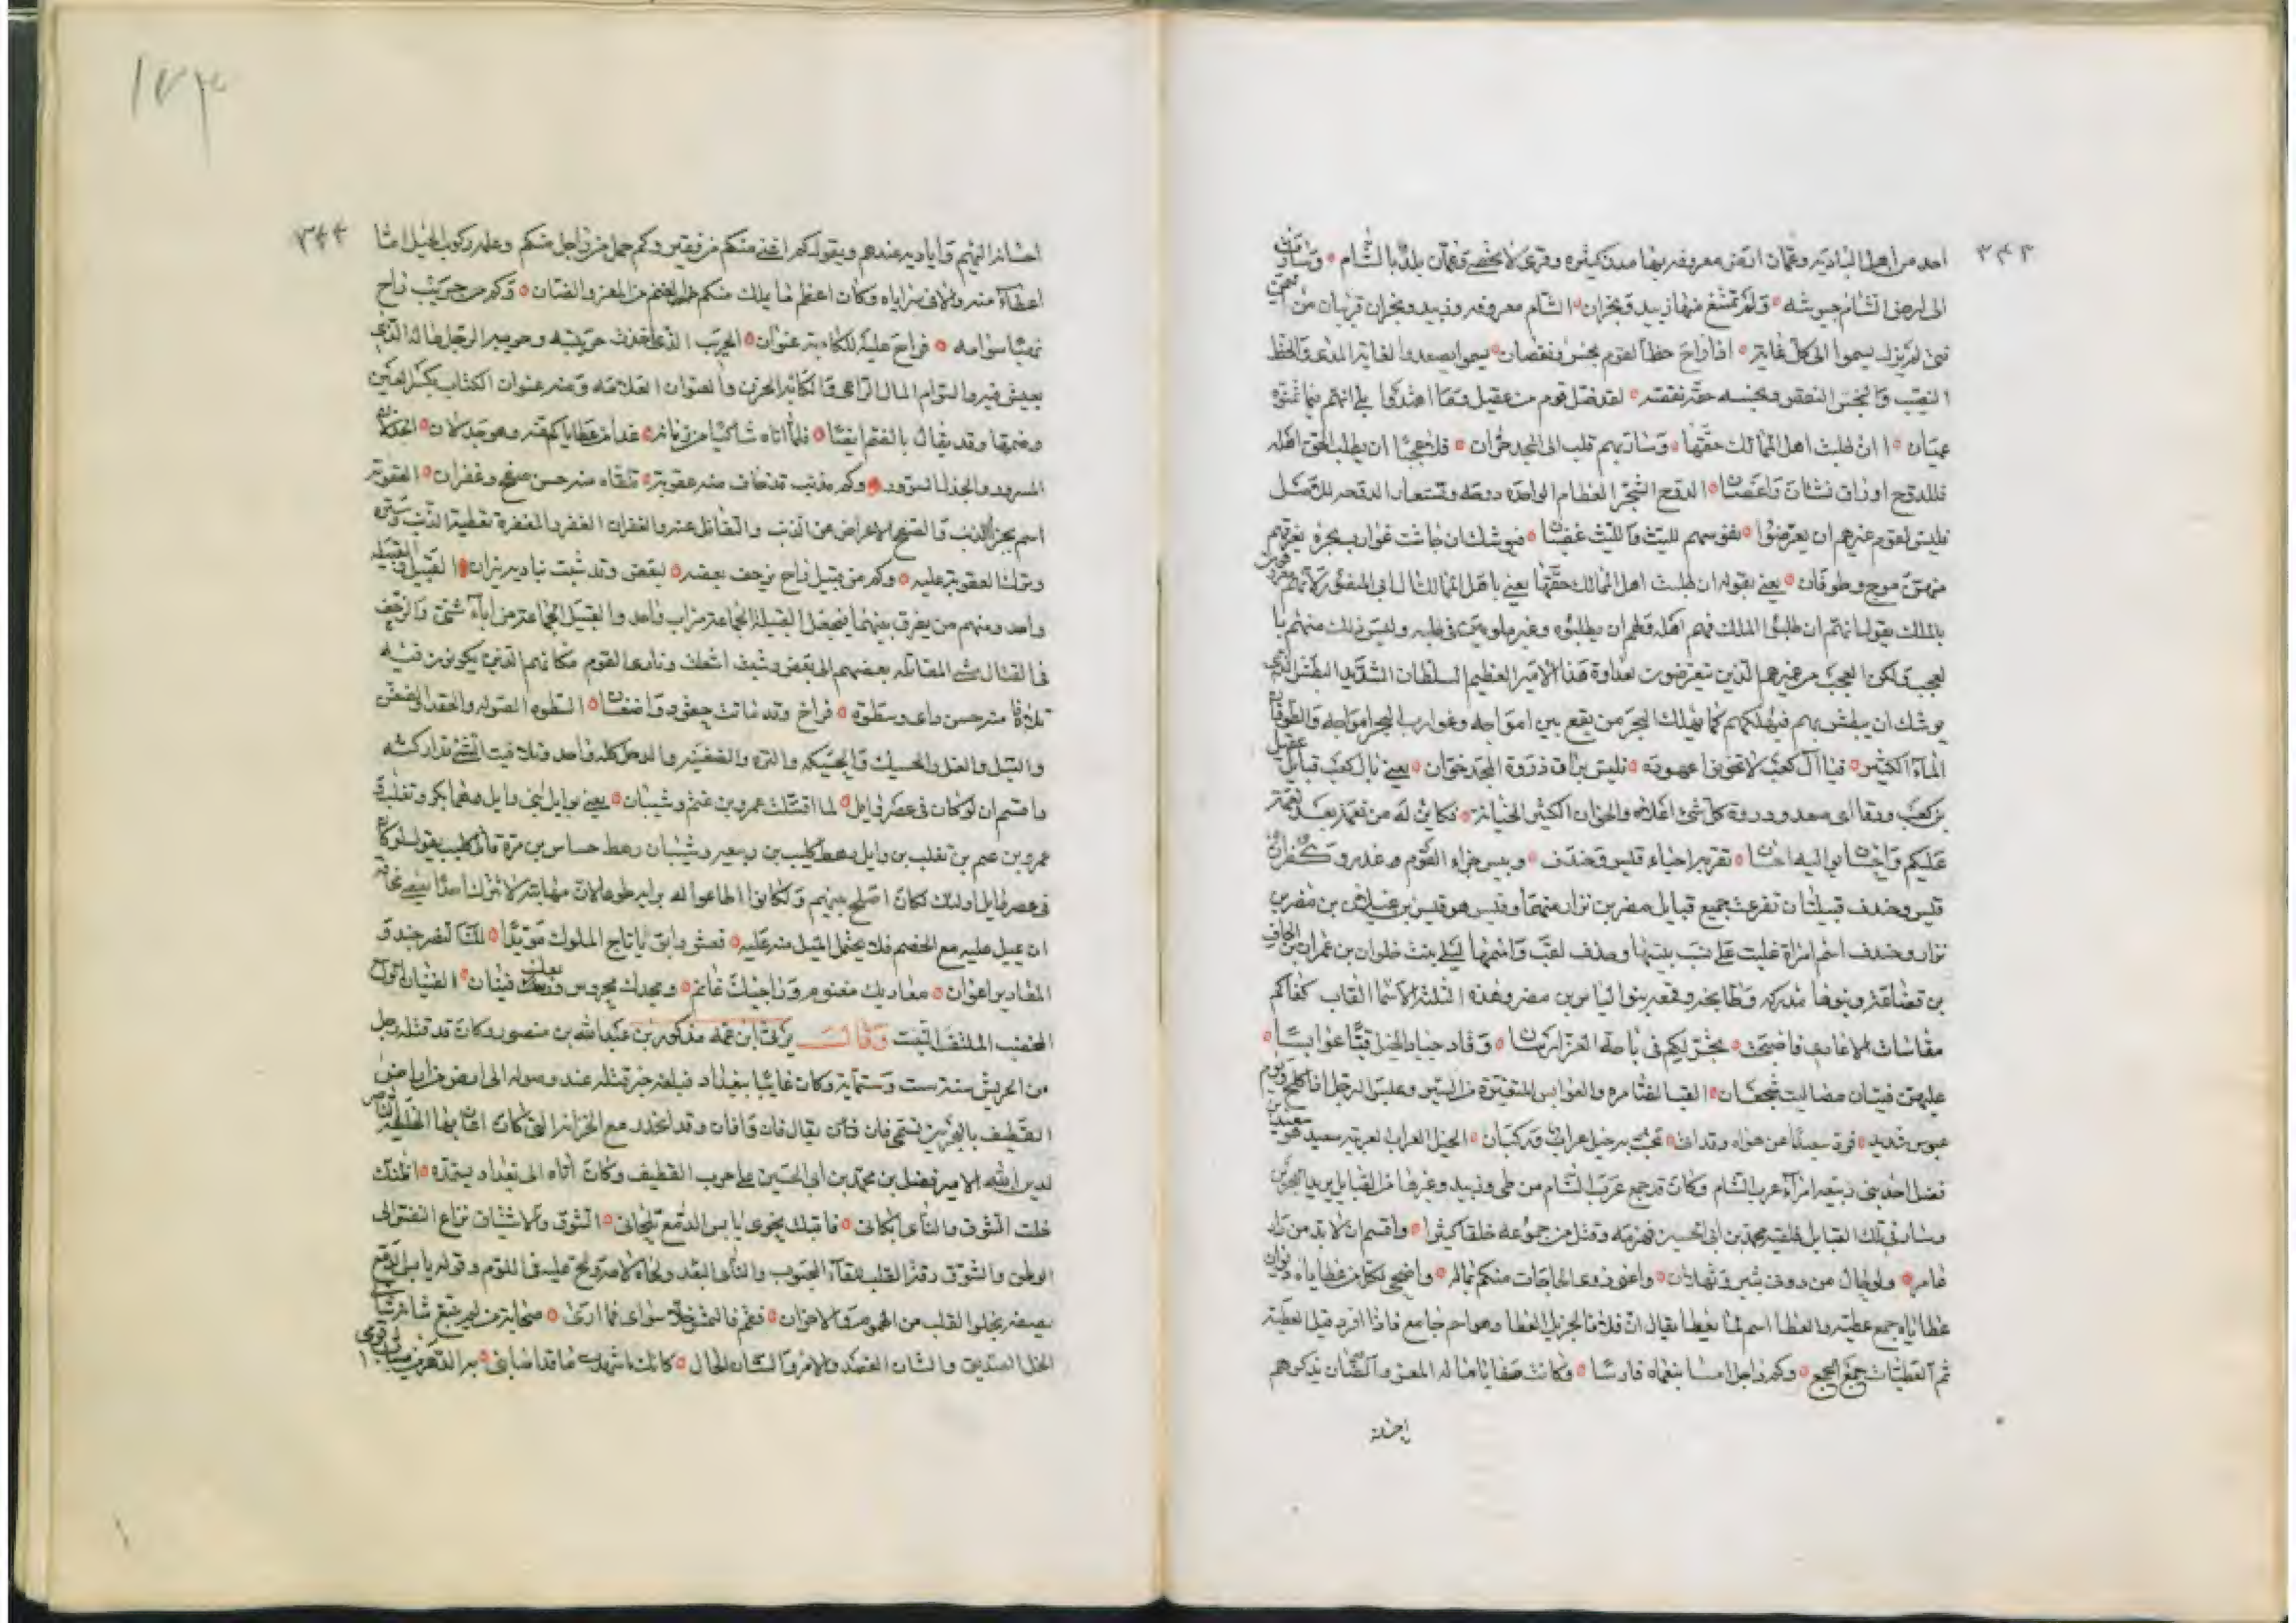 ٣٤٣
احد من اهل البادية وعمان ارض معروفه بها مدن كثيره وقرى لا تحصى وعمان بلد بالشام وسارت
الى ارض الشام جيوشه ولم تمتنع منها زبيد ونجران الشام معروفه وزبيد ونجران قريتان من
فتى لم يزل يسموا الى كل غاية اذا راح حظ القوم بخس ونقصان يسموا يصعد والغاية المدى والحظ
النصيب والبخس النقص وبخسه حقه نقصه لقد ضل قوم من عقيل وما اهتدوا على انهم فيما
عميان اان طلبت اهل الممالك حقها وسارت بهم قلب الى المجد حران فلا عجبا ان يطلب الحق اهله
فللدوح اوراق نشات واغصان الدوح الشجر العظام الواحده دوحه وتستعار الدوحه للاصل
فليس لقوم غيرهم ان يعرضوا نفوسهم لليث والليث غضبان فيوشك ان جاشت غوارب بحره يغرقهم
منهن موج وطوفان يعني بقوله ان طلبت اهل الممالك حقها يعني باهل الممالك
بالملك يقول انهم ان طلبوا الملك فهم اهله ولهم ان يطلبوه وغير ملومين في طلبه وليس ذلك منهم با
لعجب ولكن العجب من غيرهم الذين يتعرضون لعداوة هذا الامير العظيم السلطان الشديد البطش الذي
يوشك ان يبطش بهم فيهلكهم كما يهلك البحر من يقع بين امواجه وغوارب البحر امواجه والطوفان
الماء الكثير فيا آل كعب لا تخونوا عهوده فليس براق ذروة المجد خوان يعني بال كعب قبايل عقيل
بن كعب ورقا اى صعد وذروة كل شئ اعلاه والخوان الكثير الخيانة فكاين له من نعمة بعد نعمة
عليكم واحسان يواليه احسان تقر به احياء قيس وخندف وبيس جزاء القوم غدر وكفران
قيس وخندف قبيلتان تفرعت جميع قبايل مضر بن نزار منهما وقيس هو قيس بن عيلان بن مضر بن
نزار وخندف اسم امراة غلبت على نسب بنيها وخندف لقب واسمها ليلى بنت حلوان بن عمران بن الحاف
بن قضاعة وبنوها مدركه وطابخه وقمعه بنو الياس بن مضر وهذه الثلثة الاسما القاب كفاكم
مقاسات الاعادي فاصبحت تجر لكم في باحة العز اردان وقاد جياد الخيل قبا عوابسا
عليهن فتيان مصاليت شجعان القب الضامره والعوابس المتغيرة من السير وعبس الرجل اذا كلح ويوم
عبوس شديد فرد سعيدا عن هواه وقد اتى تحث به خيل عراب وركبان الخيل العراب العربية سعيد هو سعيد بن
فضل احد بني ربيعه امراء عرب الشام وكان قد جمع عرب الشام من طي وزبيد وغيرها من القبايل يريد البحرين
وسار في تلك القبايل فلقيه محمد بن ابى الحسين فهزمه وقتل من جموعه خلقا كثيرا واقسم ان لا بد من دار
عامر ولو حال من دونى شبير وثهلان واغنى ذوى الحاجات منكم بماله واضحى لكل من عطاياه ديوان
عطاياه جمع عطيه والعطا اسم لما يعطا يقال ان فلانا لجزيل العطا وهو اسم جامع فاذا افرد قيل العطية
ثم العطيات جمع الجمع وكم راجل امسا بنعماه فارسا وكانت صفايا ماله المعز والضان يذكرهم
احسانه
١٧٣
٣٤٤
احسانه اليهم واياديه عندهم ويقول كم اغنى منكم من فقير وكم حمل من راجل منكم وعلمه ركوب الخيل امتنا
اعطاه منه ولاقى سراياه وكان اعظم ما يملك منكم الغنم من المعز والضان وكم من حريب راح
نهبا سوامه فراح عليه للكابة عنوان الحريب الذى اخذت حريبته وحريبه الرجل ماله الذى
يعيش فيه والسوام المال الراعى والكابه الحزن والعنوان العلامه ومنه عنوان الكتاب بكسر العين
وضمها وقد يقال بالفتح ايضا فلما اتاه شاكيا من زمانه غدا من عطاياكم وهو جذلان الجذلان
المسرور والجذل السرور وكم مذنب قد خاف منه عقوبة تلقاه منه حسن صفح وغفران العقوبة
اسم يجزا الذنب والصفح الاعراض عن الذنب والتغافل عنه والغفران الغفر والمغفرة تغطية الذنب وستره
وترك العقوبة عليه وكم من قبيل راح يزحف بعضه لبعض وقد شبت بناديه نيران القبيل والقبيله
واحد ومنهم من يفرق بينهما فيجعل القبيلة الجماعة من اب واحد والقبيل الجماعة من اباء شتى والزحف
في القتال مشى المقاتله بعضهم الى بعض وشبت اشعلت ونادى القوم مكانهم الذى يكونون فيه
تلافاه منه حسن راى وسطوة فراح وقد ماتت حقود واضغان السطوه الصوله والحقد والضغن
والتبل والغل والحسيك والحسيكه والتره والضغينه والدحل كله واحد وتلافيت الشئ تداركته
واقسم ان لو كان في عصر وايل لما اقتتلت عمرو بن غنم وشيبان يعنى بوايل ابنى وايل وهما بكر وتغلب
عمرو بن غنم بن تغلب بن وايل رهط كليب بن ربيعه وشيبان رهط جساس بن مرة قاتل كليب يقول لو كان
في عصر وايل اولئك لكان اصلح بينهم ولكانوا اطاعوا له براية طوعا لان مهابته لا تترك احدا يعصيه مخافة
ان يميل عليه مع الخصم فلا يحتمل الميل منه عليه فعش وابق ياتاج الملوك مؤيدا لك النصر جند و
المقادير اعوان معاديك مغنوم وراجيك غانم ومجدك محروس وبعلك فينان الفينان
المخصب الملتف النبت وقال يرثى ابن عمه مذكور بن عبدالله بن منصور وكان قد قتله رجل
من الحريش سنة ست وستماية وكان غايبا ببغداد فبلغه خبر قتله عند وصوله الى ارض
القطيف بالبحرين وقد انحدر مع الخزاين التى كان اعان بها الخليفة الناصر
لدين الله الامير فضل بن محمد بن ابى الحسين على حرب القطيف وكان اتاه الى بغداد يستمده اظنك
خلت الشوق والنأى ابكانى فاقبلت نحوى يابس الدمع تلحانى الشوق والاشتياق نزاع النفس الى
الوطن والشوق رقة القلب للقاء المحبوب والنأى البعد ولحاه لامه ولح عليه في اللوم وقوله يابس الدمع
يصفه بخلو القلب من الهموم والاحزان فعم فالتمس خلا سواى فما ارى صحابة من لم يتبع شانه شانى
الخل الصديق والشان القصد والامر والشان الحال كانك ما شهدت ما قد اصابنى به الدهر من قومى